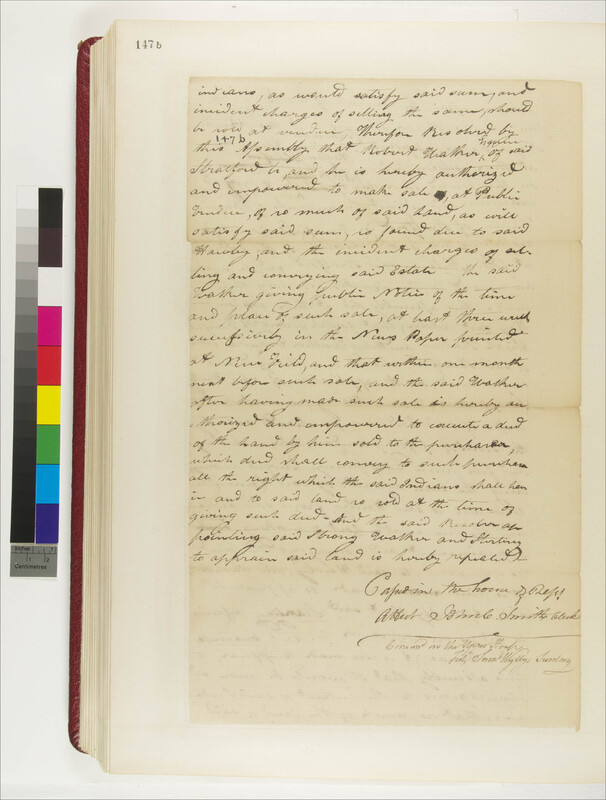 147b
indians, as would satisfy said sum, and
incident charges of selling the same, should
be sold at vendue, Therfore Resolved by
147 b
this Assembly that Robert Walker Esquire of said
Stratford be, and he is hereby authorized
and impowered to make sale, at Public
Vendue, of so much of said land, as will
satisfy said sum, so found due to said
Hawley, and the incident charges of sel-
ling and conveying said Estate the said
Walker giving public Notice of the time
and place of such sale, at least three weeks
succesively in the News Paper printed
at New Field, and that within one month
next before such sale, and the said Walker
after having made such sale is hereby au
thorized and impowered to execute a deed
of the land by him sold to the purchaser,
which deed shall convey to such purchaser
all the right which the said Indians shall have
in and to said land so sold at the time of
giving such deed - And the said Resolve ap
pointing said Strong Walker and
to appraise said land is hereby repealed
Passd in the house of Reps
Attest Smith Clerk
in the Upper House
Test Saml Wyllys Secretary
Inches 1 2
Centimetres